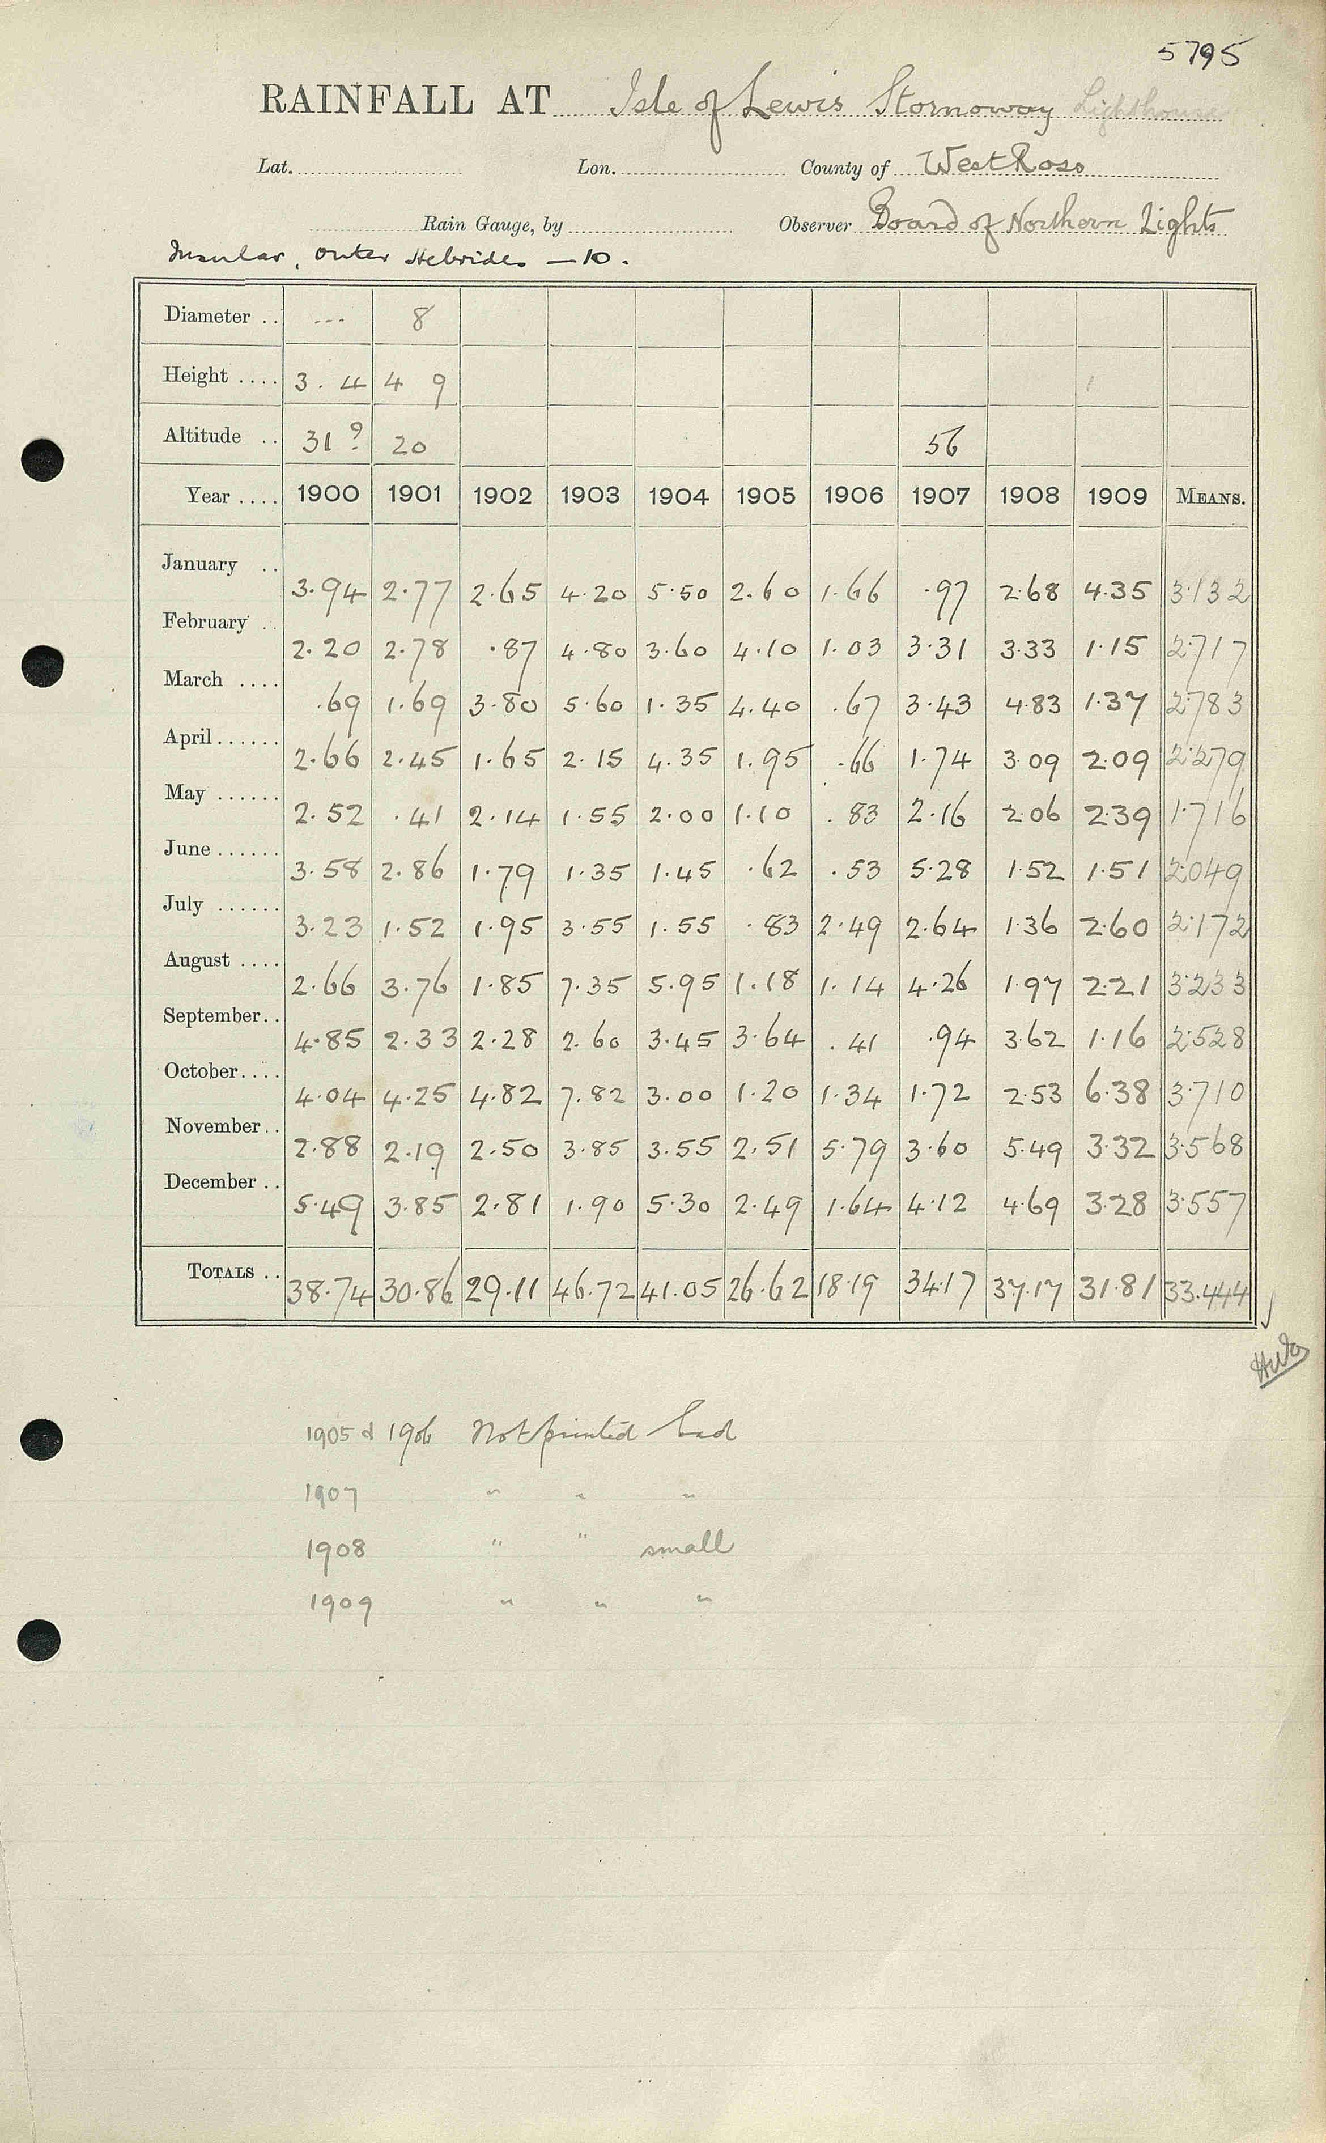 5795
RAINFALL AT Isle of Lewis Stornoway Lighthouse
Lat. Lon. County of West Ross
Rain Gauge, by Observer Board of Northern Lights
Insular, Outer Hebrides — 10.
Diameter .. --- 8
Height .... 3. 4 4 9
Altitude .. 31? 20 56
Year .... 1900 1901 1902 1903 1904 1905 1906 1907 1908 1909 MEANS.
January .. 3.94 2.77 2.65 4.20 5.50 2.60 1.66 .97 2.68 4.35 3.132
February .. 2.20 2.78 .87 4.80 3.60 4.10 1.03 3.31 3.33 1.15 2.717
March .... .69 1.69 3.80 5.60 1.35 4.40 .67 3.43 4.83 1.37 2.783
April...... 2.66 2.45 1.65 2.15 4.35 1.95 .66 1.74 3.09 2.09 2.279
May ...... 2.52 .41 2.14 1.55 2.00 1.10 .83 2.16 2.06 2.39 1.716
June...... 3.58 2.86 1.79 1.35 1.45 .62 .53 5.28 1.52 1.51 2.049
July ...... 3.23 1.52 1.95 3.55 1.55 .83 2.49 2.64 1.36 2.60 2.172
August .... 2.66 3.76 1.85 7.35 5.95 1.18 1.14 4.26 1.97 2.21 3.233
September.. 4.85 2.33 2.28 2.60 3.45 3.64 .41 .94 3.62 1.16 2.528
October.... 4.04 4.25 4.82 7.82 3.00 1.20 1.34 1.72 2.53 6.38 3.710
November.. 2.88 2.19 2.50 3.85 3.55 2.51 5.79 3.60 5.49 3.32 3.568
December .. 5.49 3.85 2.81 1.90 5.30 2.49 1.64 4.12 4.69 3.28 3.557
TOTALS .. 38.74 30.86 29.11 46.72 41.05 26.62 18.19 34.17 37.17 31.81 33.444
1905 & 1906 Not printed bad
1907 " " "
1908 " " small
1909 " " "